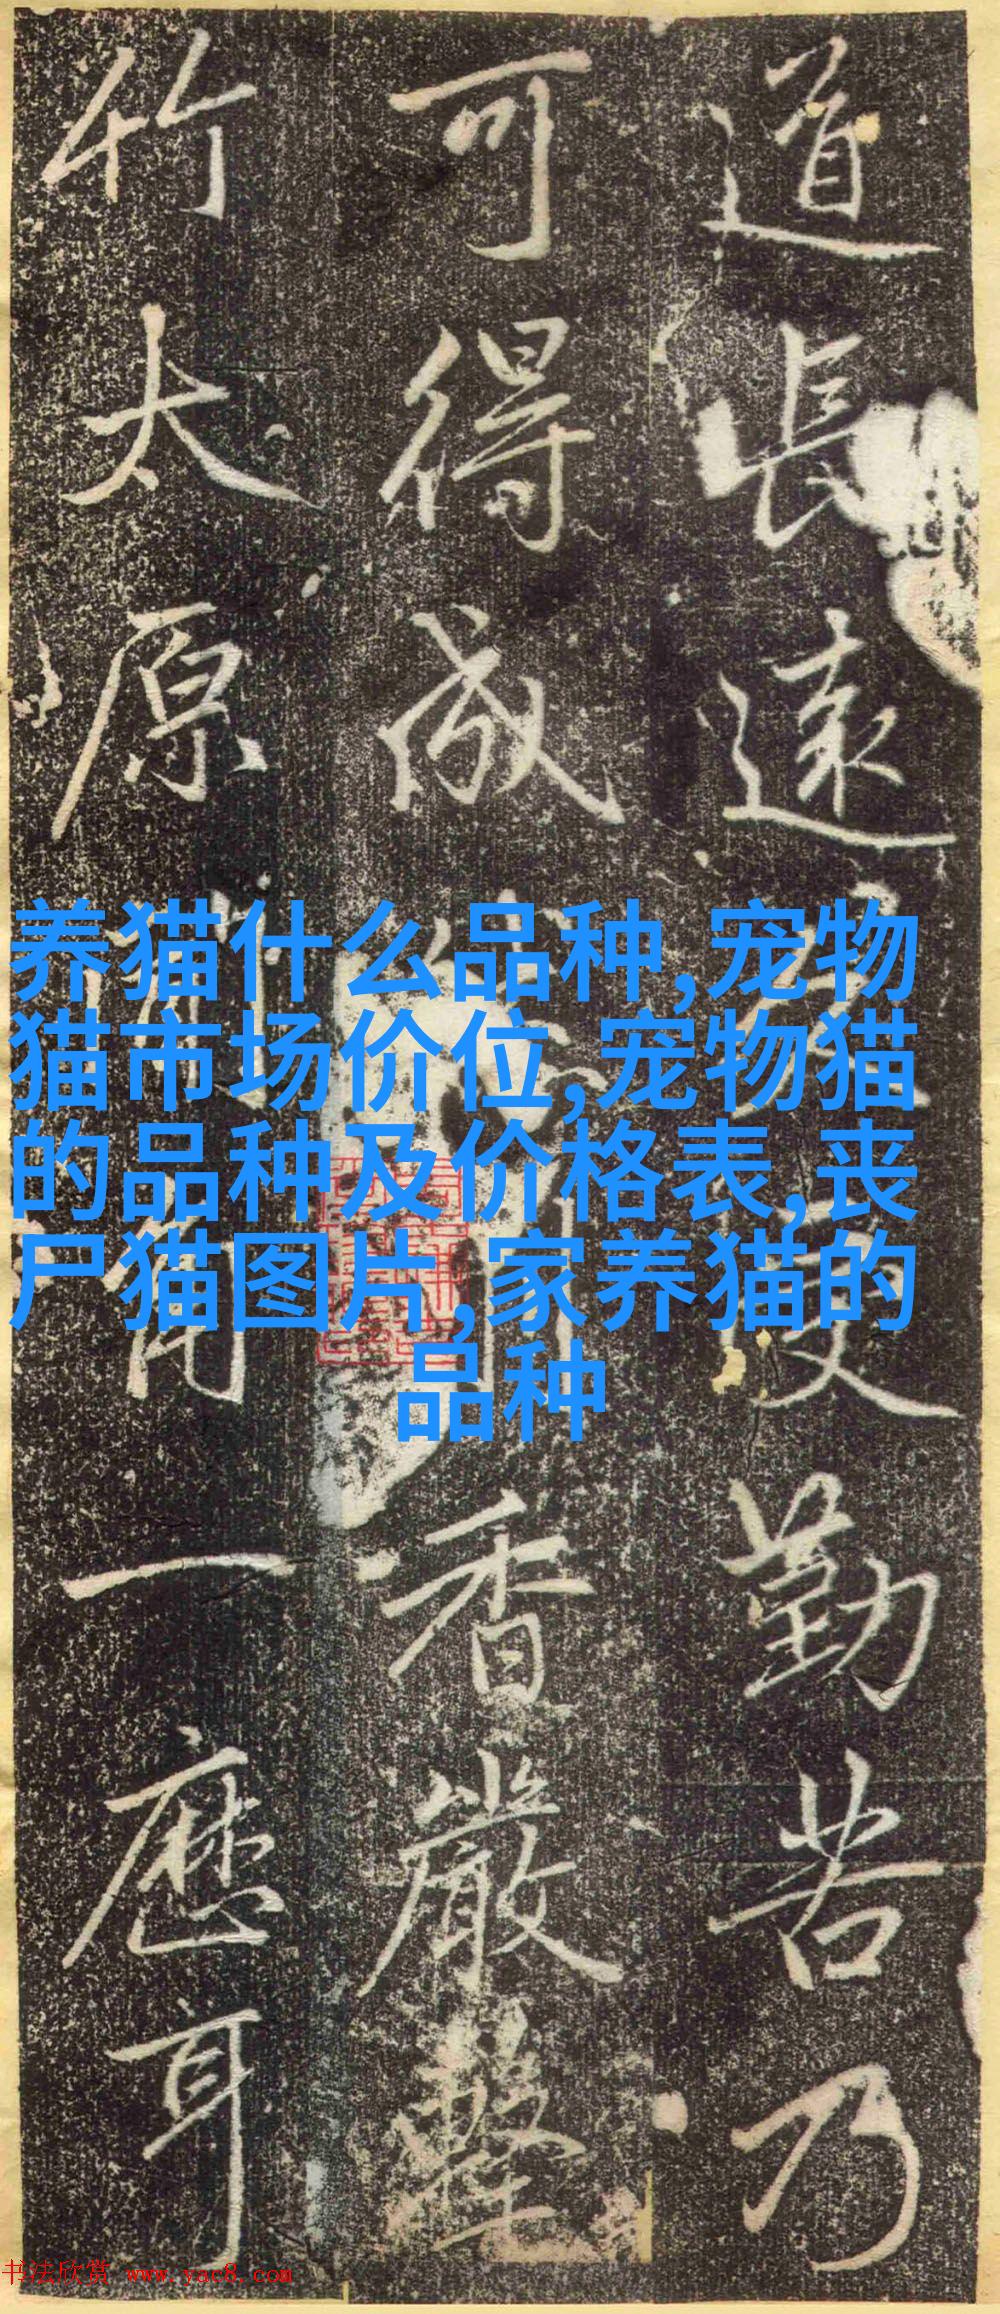 道長遠又更勤苦乃
可得成佛香嚴擊
竹太原一應耳
养猫什么品种,宠物
猫市场价位,宠物猫
的品种及价格表,丧
尸猫图片,家养猫的
品种
书法欣赏 www.yac8.com